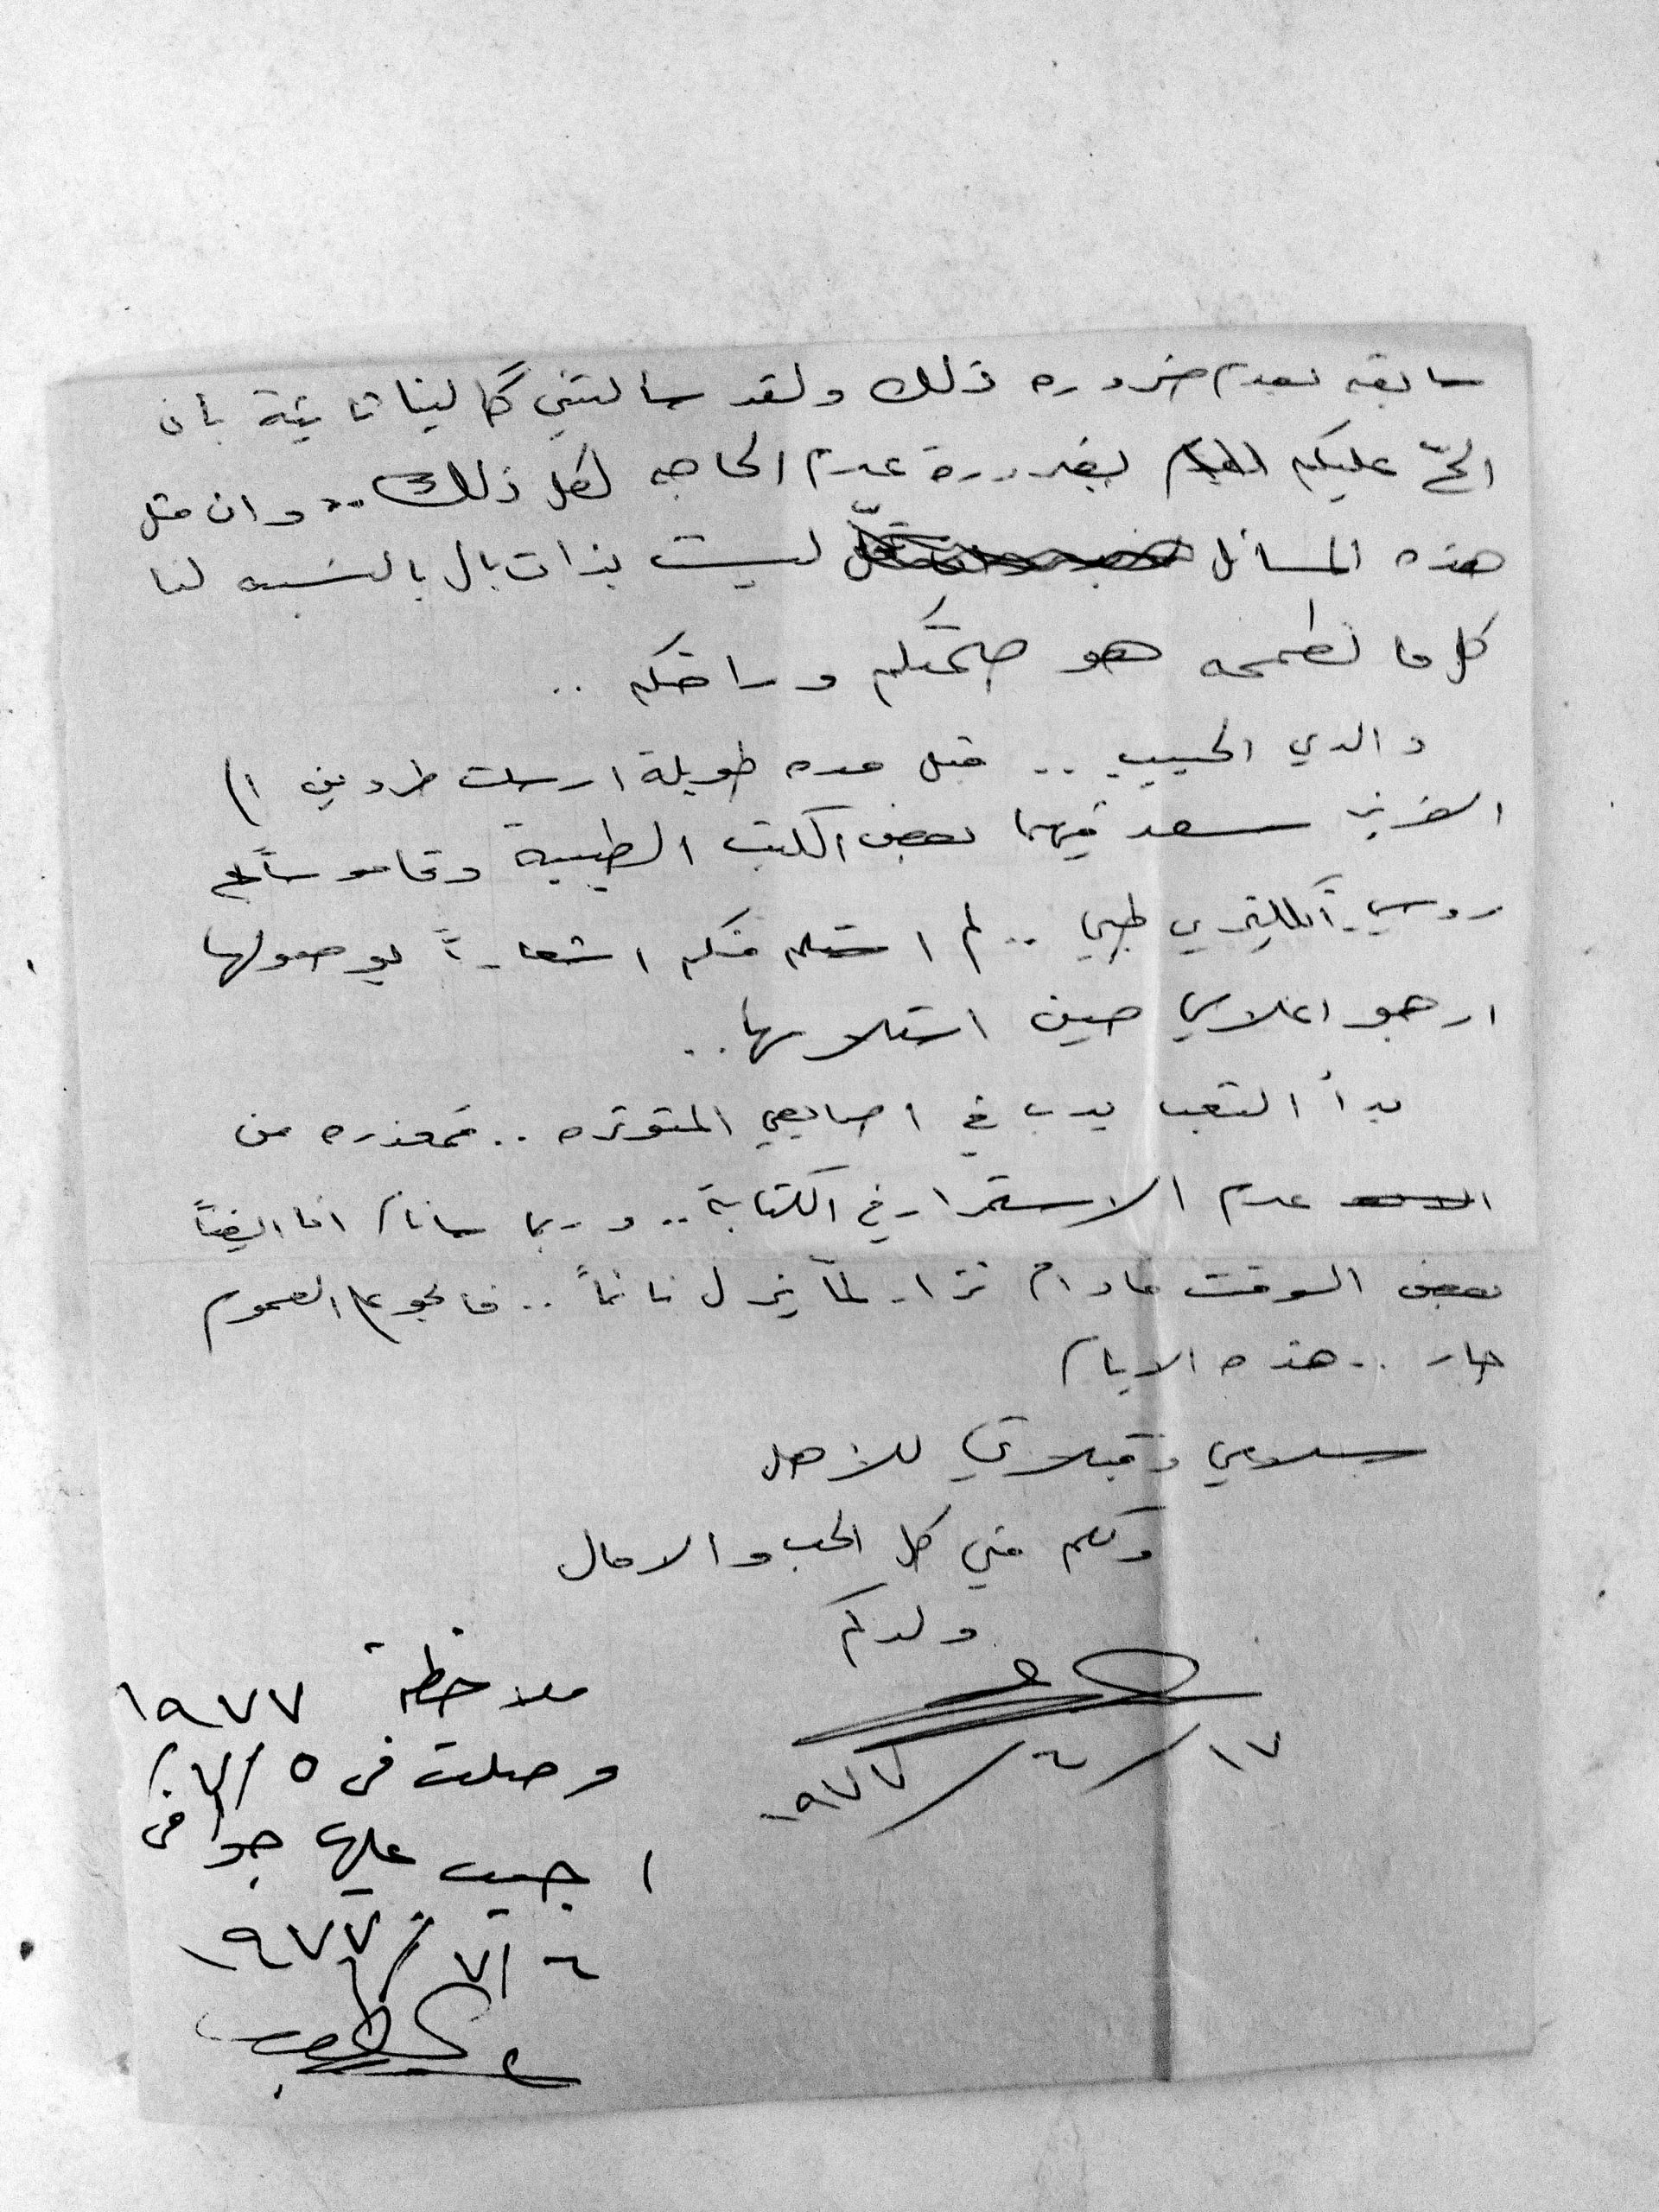 سابقه بعدم ضروره ذلك ولقد سألتني گالينا ثانية بأن
الحّ عليكم بضرورة عدم الحاجه لكل ذلك .. وان مثل
هذه المسائل ليست بذات بال بالنسبه لنا
كل ما نطمحه هو صحتكم وراحتكم ..
والدي الحبيب .. قبل مده طويلة ارسلت طردين الى
العزيز سعد فيهما بعض الكتب الطبيه وقاموساً
روسي - انكليزي طبي .. لم استلم منكم اشعاراً بوصولها
ارجو اعلامي حين استلامها ..
بدأ التعب يدب في اصابعي المتوتره .. فمعذره من
عدم الاستمرار في الكتابة .. وربما سأنام انا ايضاً
بعض الوقت مادام نزار لمّا يزل نائماً .. فالجو على العموم
حار .. هذه الايام
سلامي وقبلاتي للأهل
ولكم مني كل الحب والامال
ولدكم
١٧/٦/١٩٧٧
ملاحظة ١٩٧٧
وصلت في ٥/٧/
اجيب عليها جوا في
٦/٧/١٩٧٧